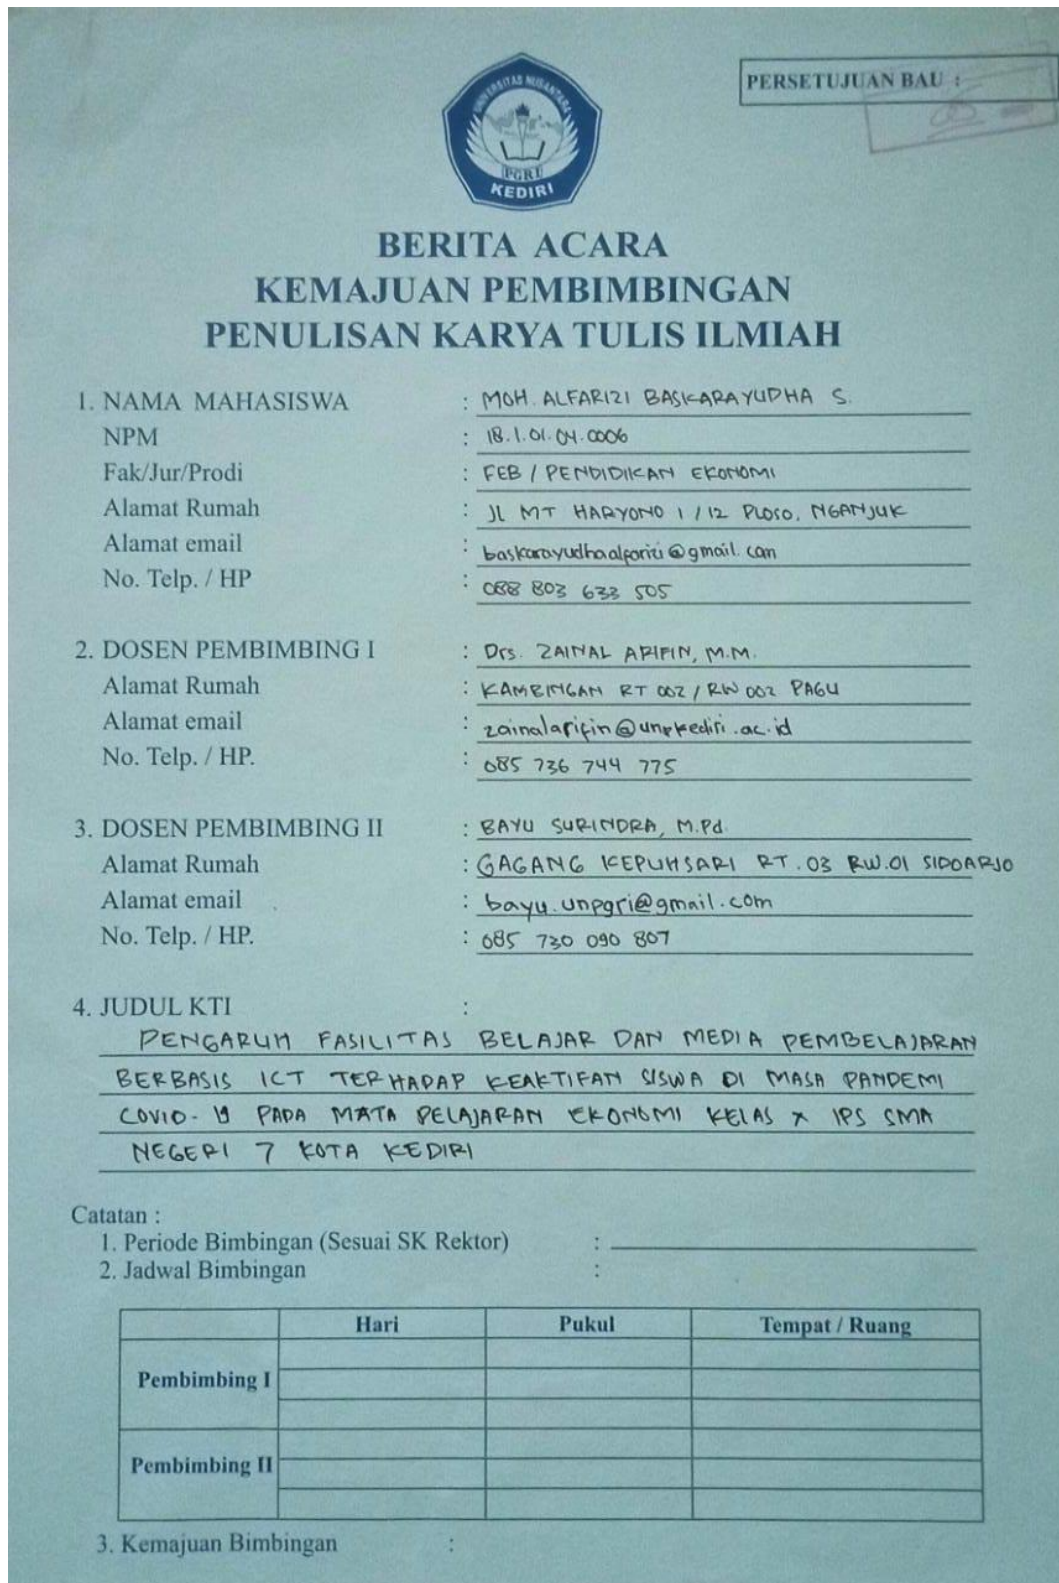 PERSETUJUAN BAU :
UNIVERSITAS NUSANTARA
PGRI
KEDIRI
BERITA ACARA
KEMAJUAN PEMBIMBINGAN
PENULISAN KARYA TULIS ILMIAH
1. NAMA MAHASISWA : MOH. ALFARIZI BASKARAYUDHA S.
NPM : 18.1.01.04.0006
Fak/Jur/Prodi : FEB / PENDIDIKAN EKONOMI
Alamat Rumah : JL MT HARYONO 1 / 12 PLOSO, NGANJUK
Alamat email : baskarayudhaalfarizi@gmail.com
No. Telp. / HP : 088 803 633 505
2. DOSEN PEMBIMBING I : Drs. ZAINAL ARIFIN, M.M.
Alamat Rumah : KAMBINGAN RT 002 / RW 002 PAGU
Alamat email : zainalarifin@unpkediri.ac.id
No. Telp. / HP. : 085 736 744 775
3. DOSEN PEMBIMBING II : BAYU SURINDRA, M.Pd.
Alamat Rumah : GAGANG KEPUHSARI RT.03 RW.01 SIDOARJO
Alamat email : bayu.unpgri@gmail.com
No. Telp. / HP. : 085 730 090 807
4. JUDUL KTI :
PENGARUH FASILITAS BELAJAR DAN MEDIA PEMBELAJARAN
BERBASIS ICT TERHADAP KEAKTIFAN SISWA DI MASA PANDEMI
COVID-19 PADA MATA PELAJARAN EKONOMI KELAS X IPS SMA
NEGERI 7 KOTA KEDIRI
Catatan :
1. Periode Bimbingan (Sesuai SK Rektor) :
2. Jadwal Bimbingan :
Hari Pukul Tempat / Ruang
Pembimbing I
Pembimbing II
3. Kemajuan Bimbingan :